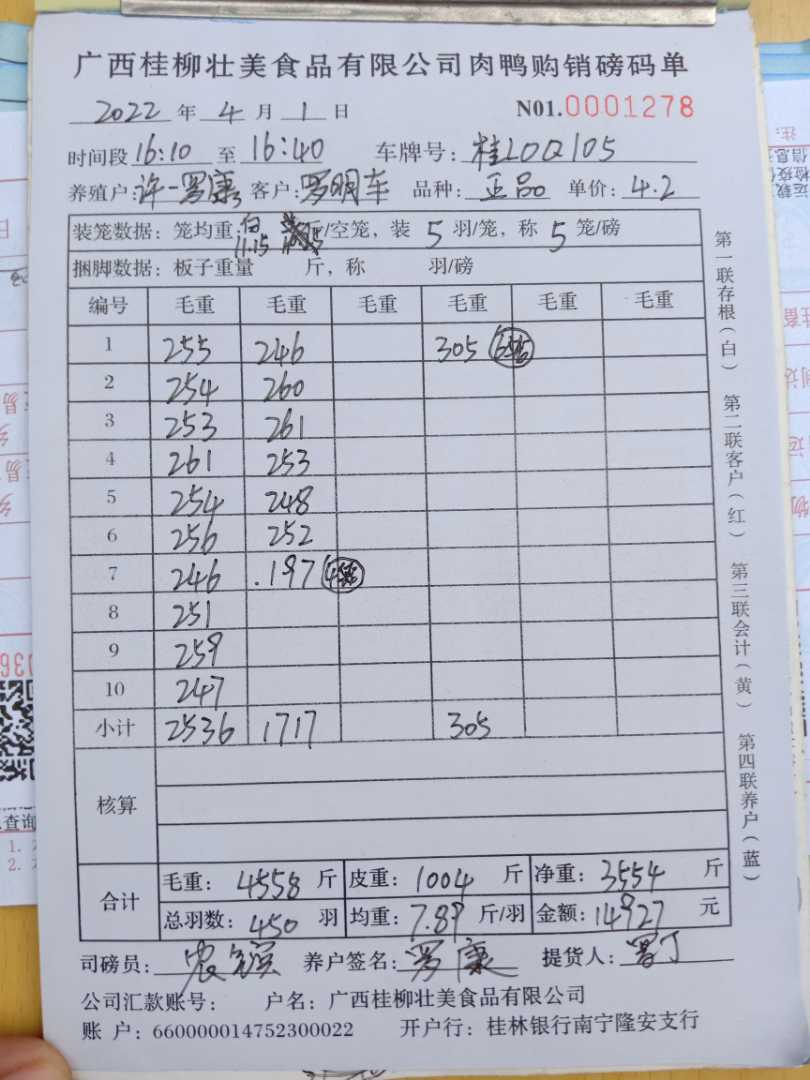 广西桂柳壮美食品有限公司肉鸭购销磅码单
2022 年 4 月 1 日 N01.0001278
时间段 16:10 至 16:40 车牌号: 桂L0Q105
养殖户: 许一罗康 客户: 罗明车 品种: 正品 单价: 4.2
装笼数据: 笼均重 白 11.15 斤/空笼, 装 5 羽/笼, 称 5 笼/磅
捆脚数据: 板子重量 斤, 称 羽/磅
编号 毛重 毛重 毛重 毛重 毛重 毛重
1 255 246 305
2 254 260
3 253 261
4 261 253
5 254 248
6 256 252
7 246 .197
8 251
9 259
10 247
小计 2536 1717 305
核算
合计
毛重: 4558 斤 皮重: 1004 斤 净重: 3554 斤
总羽数: 450 羽 均重: 7.89 斤/羽 金额: 14927 元
司磅员: 养户签名: 罗康 提货人:
公司汇款账号: 户名: 广西桂柳壮美食品有限公司
账户: 660000014752300022 开户行: 桂林银行南宁隆安支行
第一联存根(白) 第二联客户(红) 第三联会计(黄) 第四联养户(蓝)